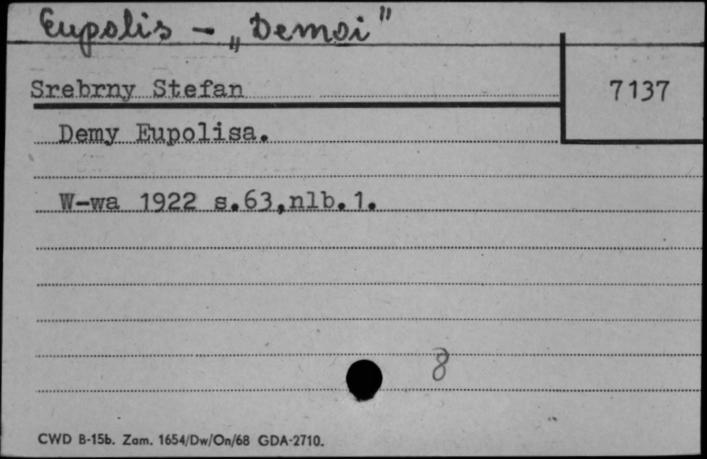 Eupolis - „Demoi"
Srebrny Stefan
7137
Demy Eupolisa.
W-wa 1922 s.63,nlb.1.
8
CWD B-15b. Zam. 1654/Dw/On/68 GDA-2710.